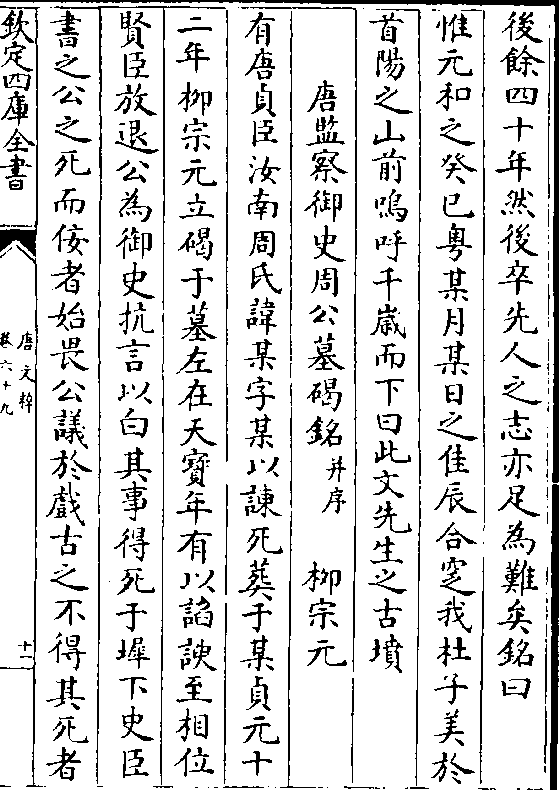 後餘四十年然後卒先人之志亦足為難矣銘曰
惟元和之癸巳粤某月某日之佳辰合窆我杜子美於
首陽之山前嗚呼千嵗而下曰此文先生之古墳
唐監察御史周公墓碣銘并序 柳宗元
有唐貞臣汝南周氏諱某字某以諫死葬于某貞元十
二年柳宗元立碣于墓左在天寶年有以諂諛至相位
賢臣放退公為御史抗言以白其事得死于墀下史臣
書之公之死而佞者始畏公議於戲古之不得其死者
欽定四庫全書
唐文粹
卷六十九
十一